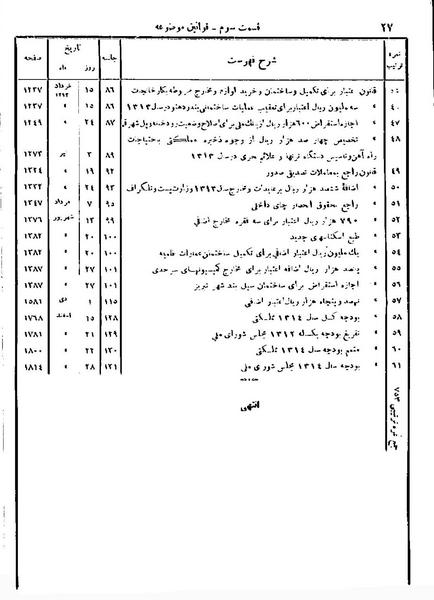 ۲۷
قسمت سوم - قوانین موضوعه
نمره ترتیب شرح فهرست جلسه تاریخ روز ماه صفحه
قانون اعتبار برای تکمیل و ساختمان و خرید لوازم و مخارج مربوطه بکارخانجات ۸۶ ۱۵ خرداد ۱۳۱۳ ۱۲۳۷
۴۰ » سه ملیون ریال اعتبار برای تعقیب عملیات ساختمانی بندر دهنو در سال ۱۳۱۳ ۸۶ ۱۵ » ۱۲۳۷
۴۷ » اجازه استقراض ۶۰۰ هزار ریال از بانک ملی برای اصلاح وضعیت رودخانه و پل شهر قم ۸۷ ۲۴ » ۱۲۴۹
۴۸ » تخصیص چهار صد هزار ریال از وجوه ذخیره مملکتی باحتیاجات
راه آهن و تاسیس دستگاه ترنها و علائم بحری در سال ۱۳۱۳ ۸۹ ۳ تیر ۱۲۷۳
۴۹ » راجع بمعاملات تصدیق صدور ۹۲ ۱۹ » ۱۳۲۴
۵۰ » اضافه ششصد هزار ریال بر عایدات و مخارج سال ۱۳۱۳ وزارت پست و تلگراف ۹۳ ۲۴ » ۱۳۳۲
۵۱ » راجع بحقوق انحصار چای داخلی ۹۵ ۷ مرداد ۱۳۴۷
۵۲ » ۷۹۰ هزار ریال اعتبار برای سه فقره مخارج اضافی ۹۹ ۱۳ شهریور ۱۳۷۶
۵۳ » طبع اسکناسهای جدید ۱۰۰ ۲۰ » ۱۳۸۲
۵۴ » یک ملیون ریال اعتبار اضافی برای تکمیل ساختمان عمارات علمیه ۱۰۰ ۲۰ » ۱۳۸۲
۵۵ » پانصد هزار ریال اضافه اعتبار برای مخارج کمیسیونهای سرحدی ۱۰۱ ۲۷ » ۱۳۸۷
۵۶ » اجازه استقراض برای ساختمان سیل بند شهر تبریز ۱۰۱ ۲۷ » ۱۳۸۷
۵۷ » نهصد و پنجاه هزار ریال اعتبار اضافی ۱۱۵ ۱ دی ۱۵۸۱
۵۸ » بودجه کل سال ۱۳۱۴ مملکتی ۱۲۸ ۱۵ اسفند ۱۷۶۸
۵۹ » تفریغ بودجه یکساله ۱۳۱۲ مجلس شورای ملی ۱۲۹ ۲۱ » ۱۷۸۱
۶۰ » متمم بودجه سال ۱۳۱۴ مملکتی ۱۳۰ ۲۲ » ۱۸۰۰
۶۱ » بودجه سال ۱۳۱۴ مجلس شورای ملی ۱۳۱ ۲۸ » ۱۸۱۴
انتهی